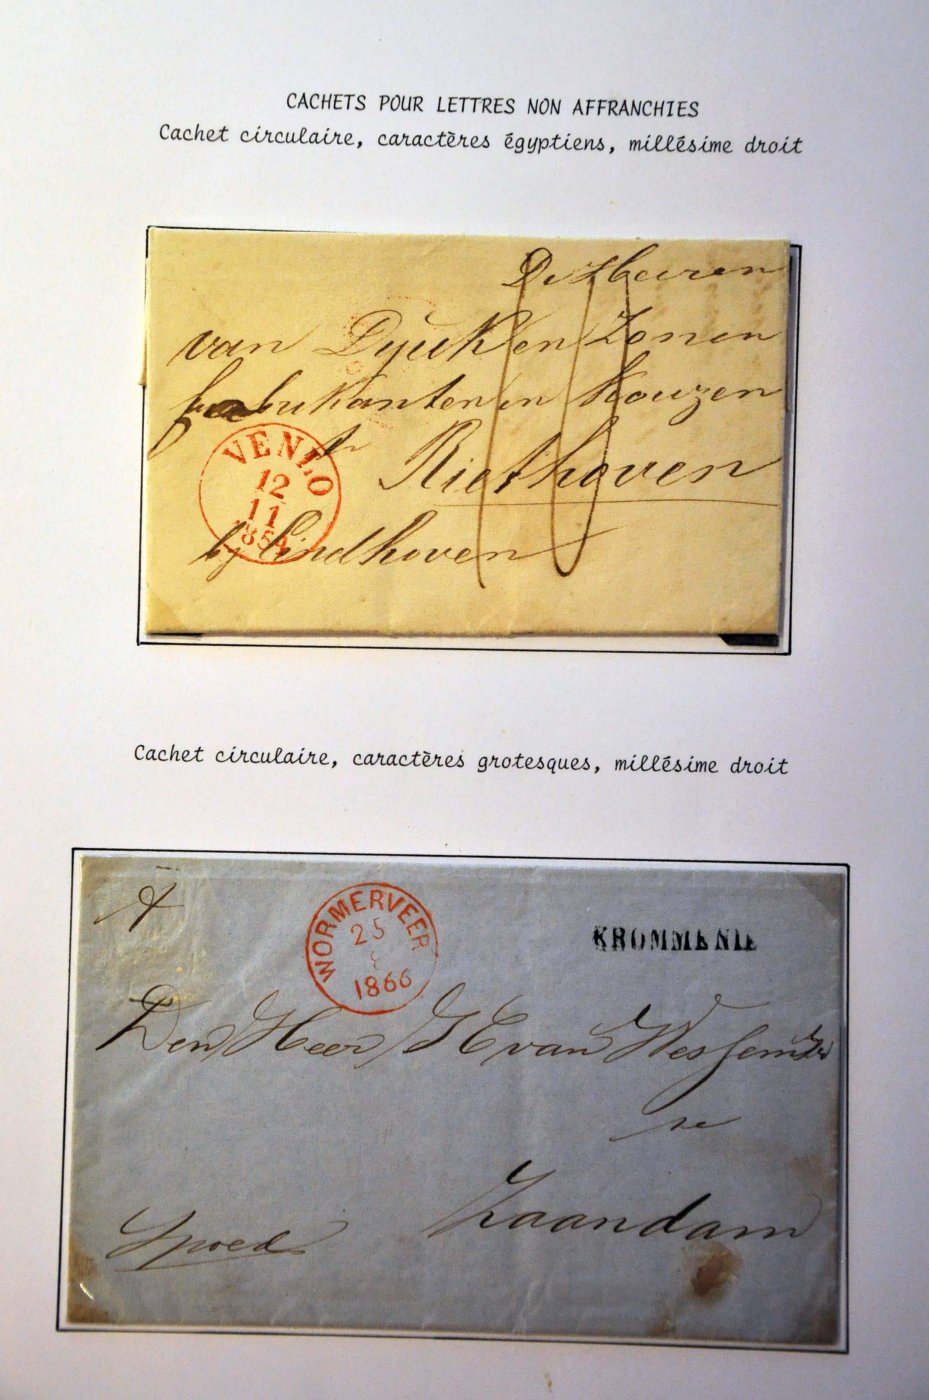 CACHETS POUR LETTRES NON AFFRANCHIES
Cachet circulaire, caractères égyptiens, millésime droit
De Heeren
van Dyck en Zonen
fabrikanten en
te Riethoven
bij Eindhoven
10
VENLO
12
11
1854
Cachet circulaire, caractères grotesques, millésime droit
WORMERVEER
25
8
1866
KROMMENIE
Den Heer
van Wessem
te
Zaandam
Spoed